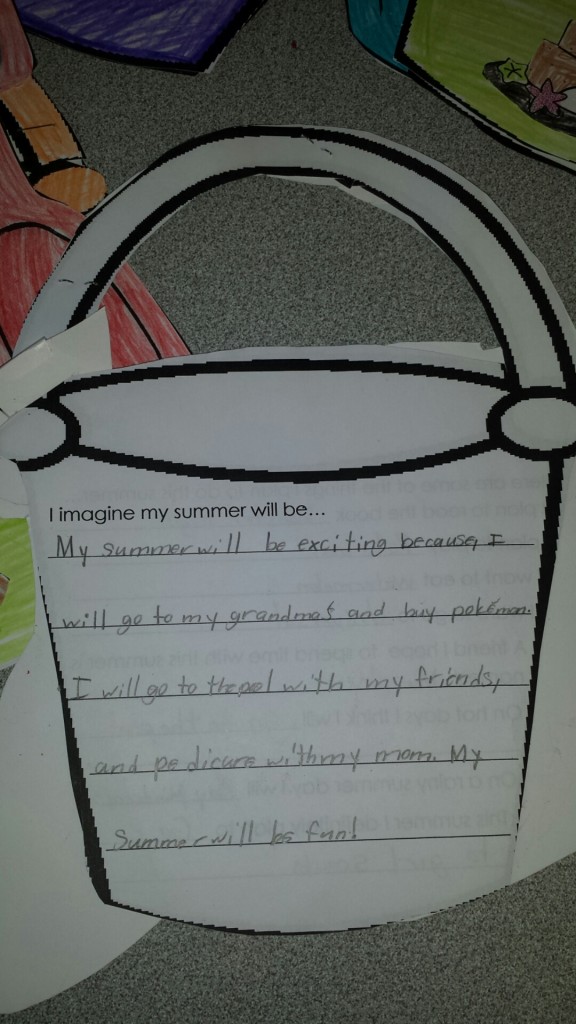 I imagine my summer will be...
My summer will be exciting because, I
will go to my grandmas and buy pokémon.
I will go to the pol with my friends,
and pedicure with my mom. My
Summer will be fun!